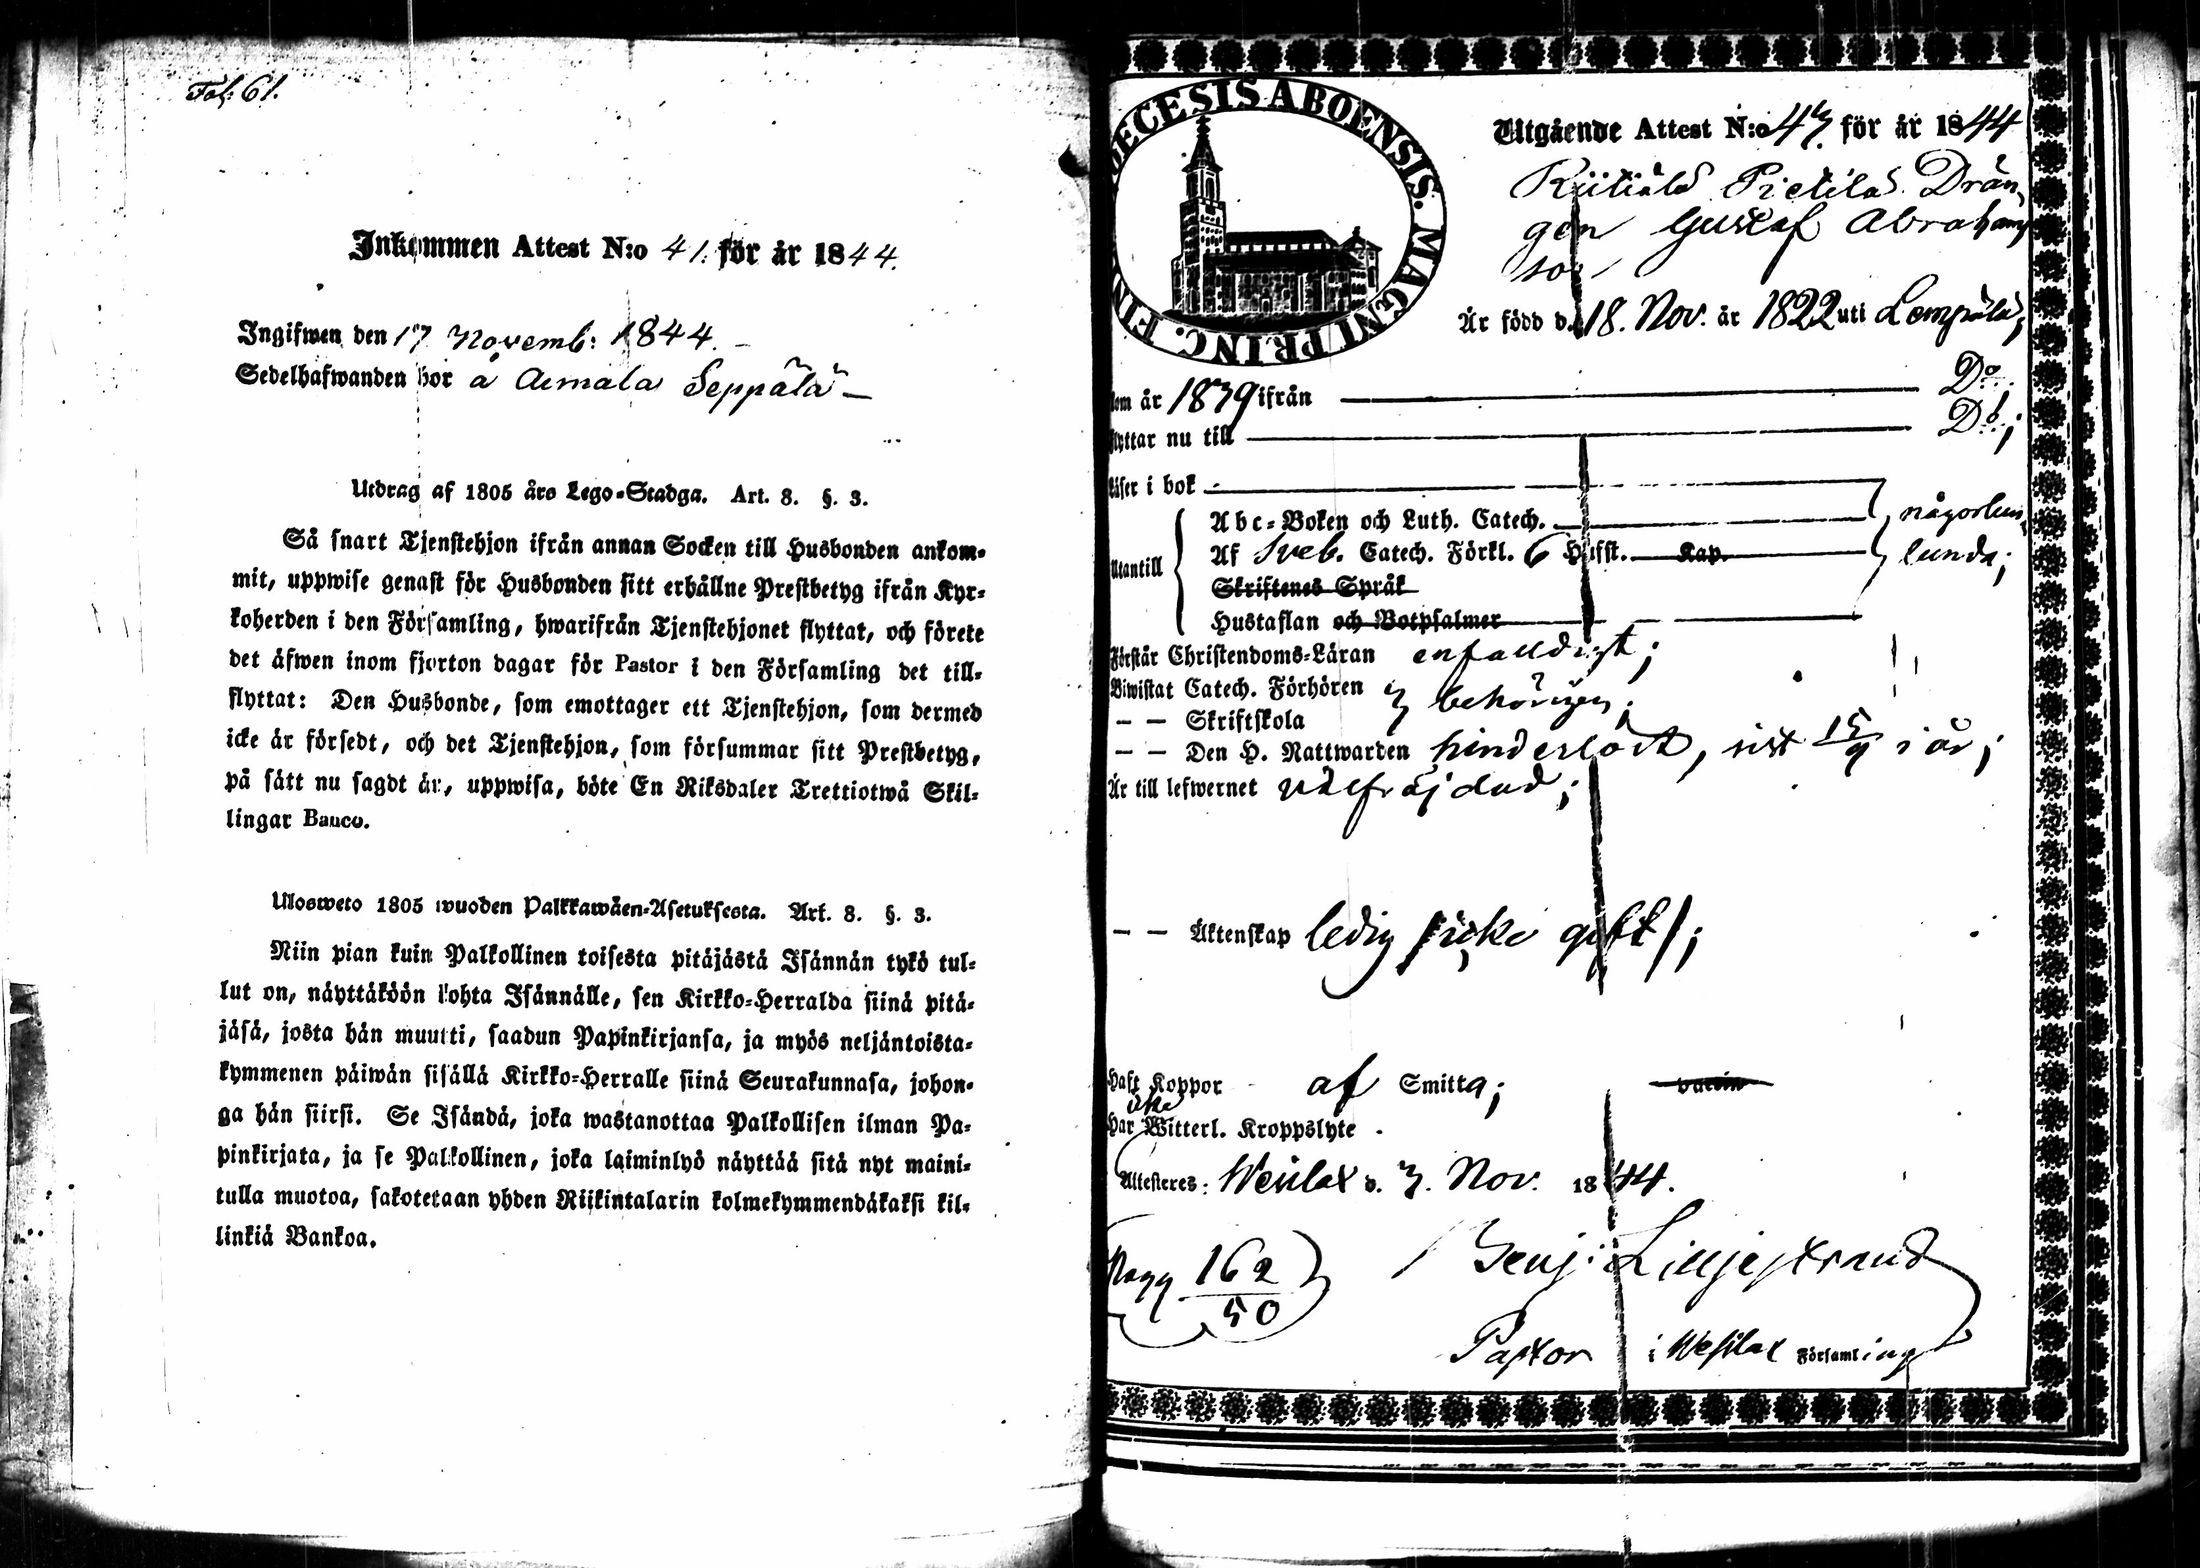 Fol. 61.
Inkommen Attest N:o 41. för år 1844.
Ingifwen den 17 Novemb: 1844.
Sedelhafwanden bor å Aimala Seppälä
Utdrag af 1805 års Lego-Stadga. Art. 8. §. 3.
Så snart Tjenstehjon ifrån annan Socken till Husbonden ankom-
mit, uppwise genast för Husbonden sitt erhållne Prestbetyg ifrån Kyr-
koherden i den Församling, hwarifrån Tjenstehjonet flyttat, och förete
det äfwen inom fjorton dagar för Pastor i den Församling det till-
flyttat: Den Husbonde, som emottager ett Tjenstehjon, som dermed
icke är försedt, och det Tjenstehjon, som försummar sitt Prestbetyg,
på sätt nu sagdt är, uppwisa, böte En Riksdaler Trettiotwå Skil-
lingar Banco.
Ulosweto 1805 wuoden Palkkawäen-Asetuksesta. Art. 8. §. 3.
Niin pian kuin Palkollinen toisesta pitäjästä Isännän tykö tul-
lut on, näyttäköön kohta Isännälle, sen Kirkko-Herralda siinä pitä-
jäsä, josta hän muutti, saadun Papinkirjansa, ja myös neljäntoista-
kymmenen päiwän sisällä Kirkko-Herralle siinä Seurakunnasa, johon-
ga hän siirsi. Se Isändä, joka wastanottaa Palkollisen ilman Pa-
pinkirjata, ja se Palkollinen, joka laiminlyö näyttää sitä nyt maini-
tulla muotoa, sakotetaan yhden Riikintalarin kolmekymmendäkaksi kil-
linkiä Bankoa.
DIECESIS ABOENSIS. MAGNI PRINC. FIN
Utgående Attest N:o 47. för år 1844
Pietilä Drän-
gen Gustaf Abrahams
son
Är född d. 18. Nov. år 1822 uti Lempälä,
kom år 1839 ifrån D:o.
flyttar nu till D:o;
Läser i bok
Abc-Boken och Luth. Catech. någorlun-
Utantill Af Sveb. Catech. Förkl. 6 Hufst. Kap. lunda;
Skriftenes Språk
Hustaflan och Botpsalmer
Förstår Christendoms-Läran enfalldigt;
Biwistat Catech. Förhören
— — Skriftskola behörigen;
— — Den H. Nattwarden hinderlöst, sist 15/9 i år;
Är till lefwernet välfräjdad;
— — Äktenskap ledig (icke gift);
Haft Koppor af Smitta; vaccin
icke
Har Witterl. Kroppslyte.
Attesteres: Wesilax d. 3. Nov. 1844.
Pagg 162/50
Benj: Lilljestrand
Pastor i Wesilax Församling